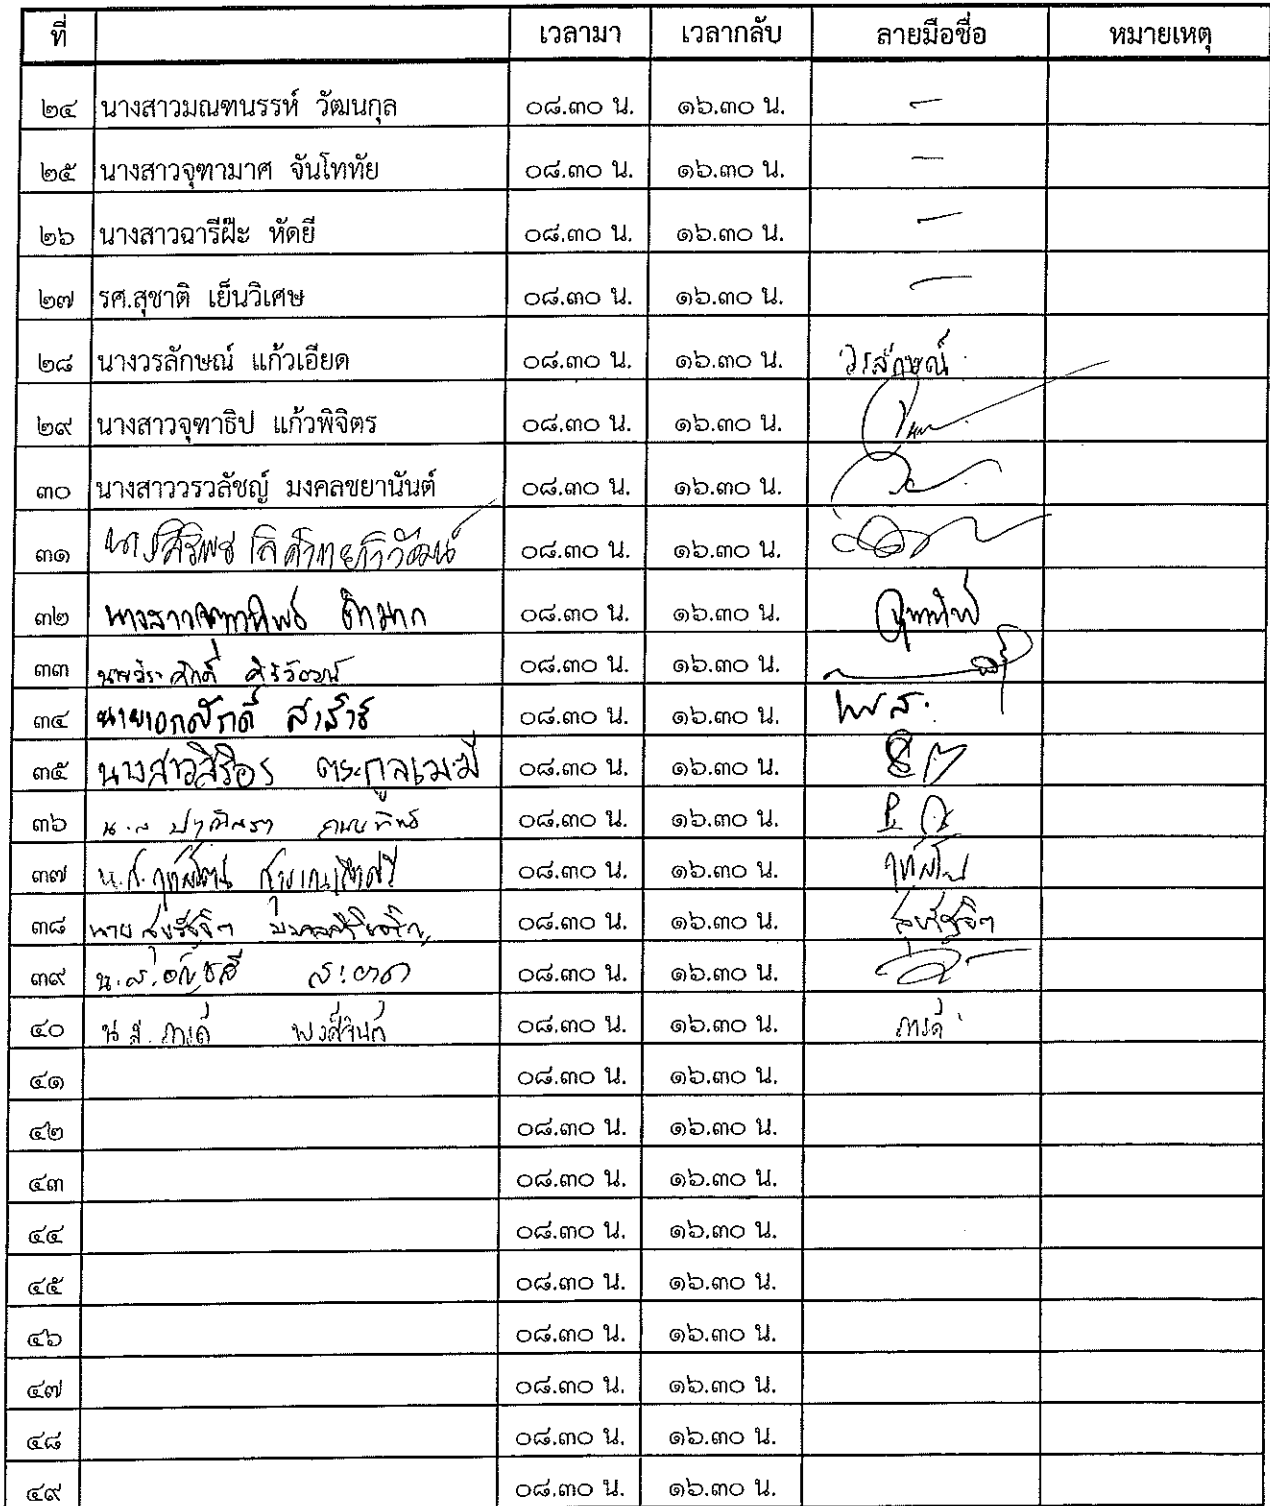 ที่ เวลามา เวลากลับ ลายมือชื่อ หมายเหตุ
๒๔ นางสาวมณฑนรรห์ วัฒนกุล ๐๘.๓๐ น. ๑๖.๓๐ น. –
๒๕ นางสาวจุฑามาศ จันโททัย ๐๘.๓๐ น. ๑๖.๓๐ น. –
๒๖ นางสาวฉารีฝ๊ะ หัดยี ๐๘.๓๐ น. ๑๖.๓๐ น. –
๒๗ รศ.สุชาติ เย็นวิเศษ ๐๘.๓๐ น. ๑๖.๓๐ น. –
๒๘ นางวรลักษณ์ แก้วเอียด ๐๘.๓๐ น. ๑๖.๓๐ น. วรลักษณ์
๒๙ นางสาวจุฑาธิป แก้วพิจิตร ๐๘.๓๐ น. ๑๖.๓๐ น.
๓๐ นางสาววรวลัชญ์ มงคลชยานันต์ ๐๘.๓๐ น. ๑๖.๓๐ น.
๓๑ ๐๘.๓๐ น. ๑๖.๓๐ น.
๓๒ นางสาวจุฑาทิพย์ ๐๘.๓๐ น. ๑๖.๓๐ น. จุฑาทิพย์
๓๓ นายวีระศักดิ์ ศิริวัฒน์ ๐๘.๓๐ น. ๑๖.๓๐ น.
๓๔ นายเอกศักดิ์ ๐๘.๓๐ น. ๑๖.๓๐ น.
๓๕ นางสาวสิริอร ตระกูลเมฆี ๐๘.๓๐ น. ๑๖.๓๐ น.
๓๖ น.ส ๐๘.๓๐ น. ๑๖.๓๐ น.
๓๗ น.ส. ๐๘.๓๐ น. ๑๖.๓๐ น.
๓๘ นาย ๐๘.๓๐ น. ๑๖.๓๐ น.
๓๙ น.ส. ๐๘.๓๐ น. ๑๖.๓๐ น.
๔๐ น.ส. ภารดี พงศ์จินต์ ๐๘.๓๐ น. ๑๖.๓๐ น. ภารดี
๔๑ ๐๘.๓๐ น. ๑๖.๓๐ น.
๔๒ ๐๘.๓๐ น. ๑๖.๓๐ น.
๔๓ ๐๘.๓๐ น. ๑๖.๓๐ น.
๔๔ ๐๘.๓๐ น. ๑๖.๓๐ น.
๔๕ ๐๘.๓๐ น. ๑๖.๓๐ น.
๔๖ ๐๘.๓๐ น. ๑๖.๓๐ น.
๔๗ ๐๘.๓๐ น. ๑๖.๓๐ น.
๔๘ ๐๘.๓๐ น. ๑๖.๓๐ น.
๔๙ ๐๘.๓๐ น. ๑๖.๓๐ น.